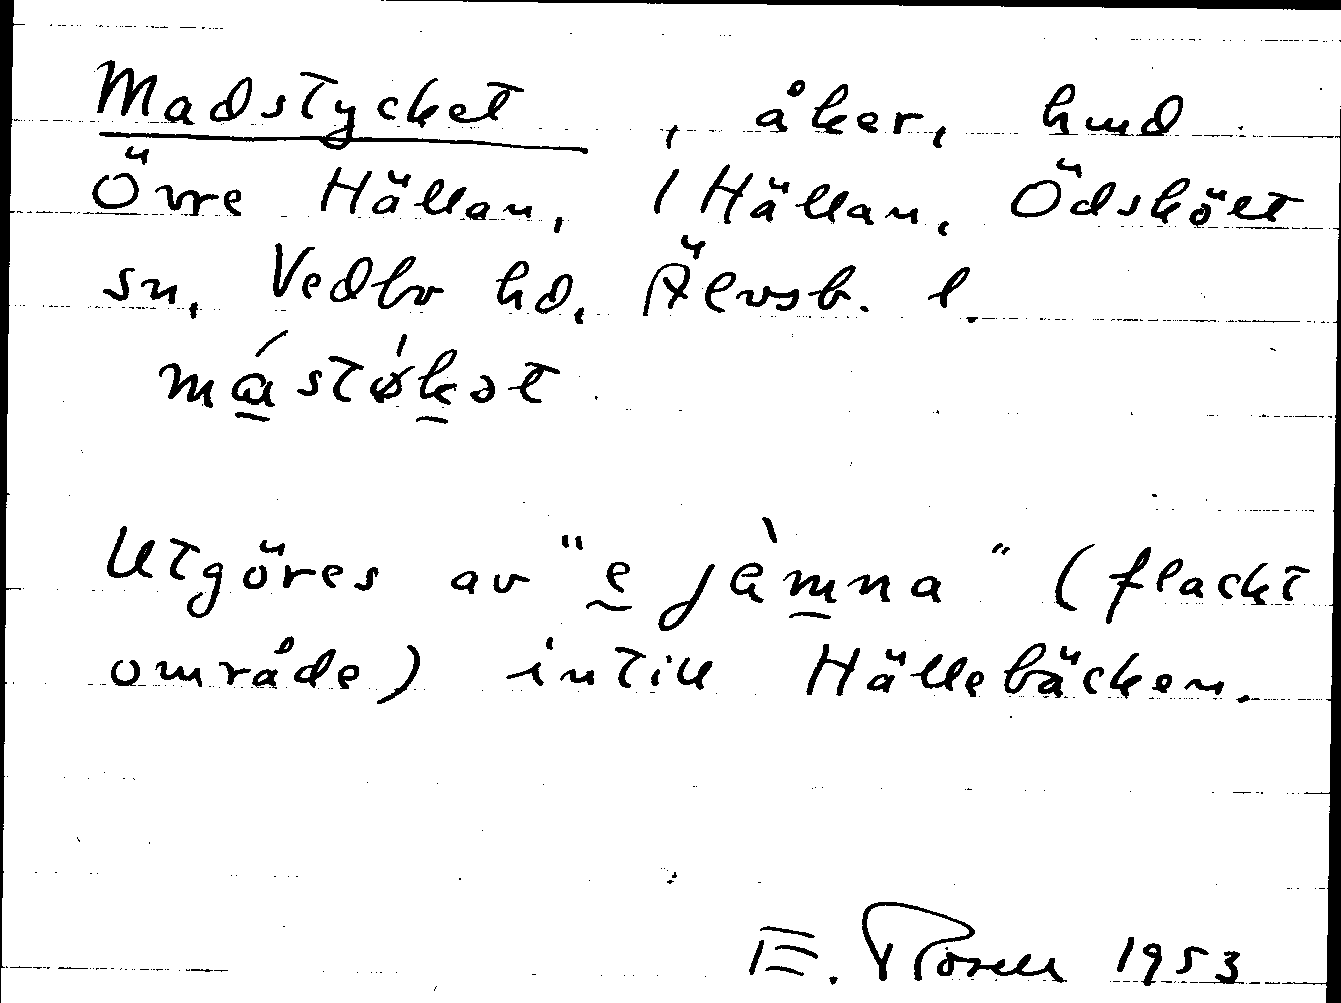 Madstycket, åker, hmd
Övre Hällan, 1 Hällan, Ödskölt
sn, Vedbo hd, Älvsb. l.
má̱stǿḵət
Utgöres av "e̱ jàm̱na" (flackt
område) intill Hällebäcken.
E. Rosell 1953